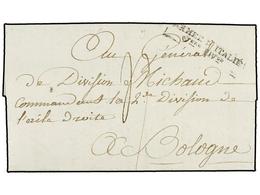 ARMÉE D'ITALIE
Au Général
de Division Michaud
Commandant la 2.de Division de
l'aile droite
A Bologne